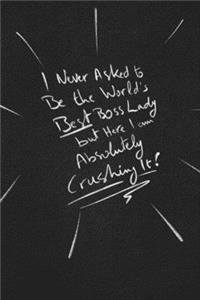 I Never Asked to
Be the World's
Best Boss Lady
but Here I am
Absolutely
Crushing It!